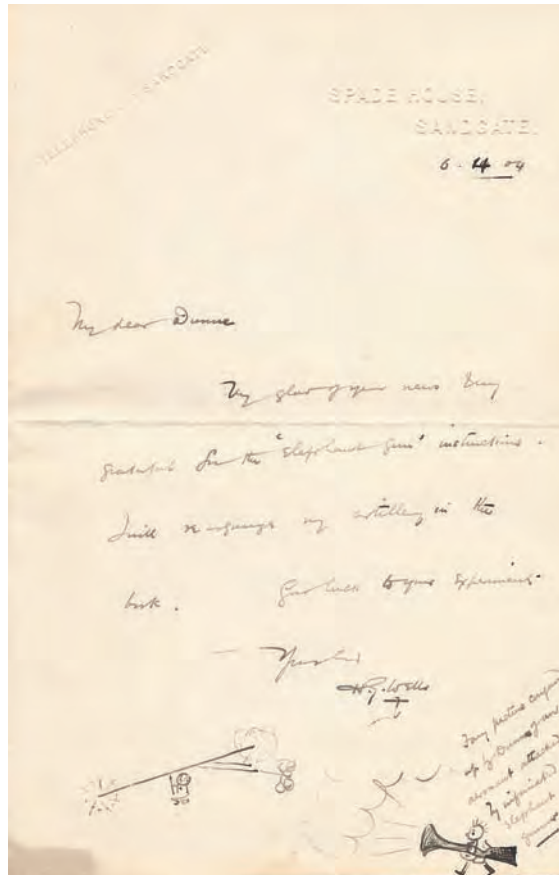 TELEPHONE SANDGATE
SPADE HOUSE,
SANDGATE.
6. 4 04
My dear Dunne
Very glad of your news Very
grateful for the "Elephant Gun" instructions.
I will rearrange my artillery in the
book. Good luck to your experiments.
Yours Ever
H.G. Wells
Fancy picture conjured
up by Dunne's
attached
elephant
guns